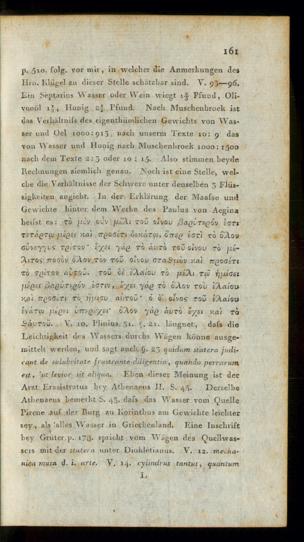 161
p. 510. folg. vor mir, in welcher die Anmerkungen des
Hrn. Klügel zu dieser Stelle schätzbar sind. V. 93—96.
Ein Septarius Wasser oder Wein wiegt Pfund, Oli-
venöl Honig Pfund. Nach Muschenbroek ist
das Verhältnifs des eigenthümlichen Gewichts von Was-
ser und Oel 1000:913, nach unserm Texte 10: 9 das
von Wasser und Honig nach Muschenbroek 1000: 1500
nach dem Texte 2:3 oder 10 : 15. Also stimmen beyde
Rechnungen ziemlich genau. Noch ist eine Stelle, wel-
che die Verhältnisse der Schwere unter denselben 3 Flüs-
sigkeiten angiebt. In der Erklärung der Maafse und
Gewichte hinter dem Werke des Paulus von Aegina
heifst es: τὸ μὲν οὖν μέλι τοῦ οἴνου βαρύτερόν ἐστι
τετάρτῳ μέρει καὶ προσέτι δεκάτῳ, ὥπερ ἐστὶ τὸ ὅλον
σύνεγγυς τρίτον· ἔχει γὰρ τὸ αὐτὸ τοῦ οἴνου τὸ μέ-
λιτος ποσὸν ὅλον τὸν τοῦ οἴνου σταθμὸν καὶ προσέτι
τὸ τρίτον αὐτοῦ. τοῦ δὲ ἐλαίου τὸ μέλι τῷ ἡμίσει
μέρει βαρύτερόν ἐστιν, ἔχει γὰρ τὸ ὅλον τοῦ ἐλαίου
καὶ προσέτι τὸ ἥμισυ αὐτοῦ· ὁ δ' οἶνος τοῦ ἐλαίου
ἐνάτῳ μέρει ὑπερέχει· ὅλον γὰρ αὐτὸ ἔχει καὶ τὸ
αὐτοῦ. V. 10. Plinius. 31. 5. 21. läugnet, dafs die
Leichtigkeit des Wassers durchs Wägen könne ausge-
mittelt werden, und sagt auch quidam statera judi-
cant de salubritate frustrante diligentia, quando perrarum
est, ut levior sit aliqua. Eben dieser Meinung ist der
Arzt Erasistratus bey Athenaeus II. S. 43. Derselbe
Athenaeus bemerkt S. 43. dafs das Wasser vom Quelle
Pirene auf der Burg zu Korinthus am Gewichte leichter
sey, als alles Wasser in Griechenland. Eine Inschrift
bey Gruter p. 178. spricht vom Wägen des Quellwas-
sers mit der statera unter Diokletianus. V. 12. mecha-
nica musa d. i. arte. V. 14. cylindrus tantus, quantum
L